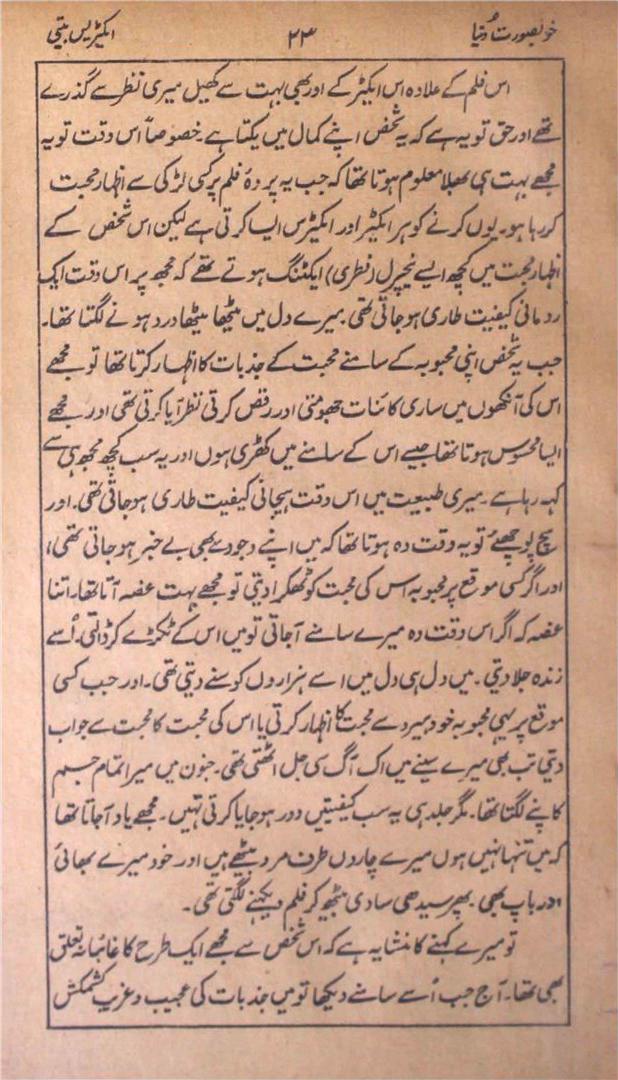 خوبصورت دُنیا
۲۳
ایکٹریس بیتی
اس فلم کے علاوہ اس ایکٹر کے اور بھی بہت سے کھیل میری نظر سے گذرے
تھے اور حق تو یہ ہے کہ یہ شخص اپنے کمال میں یکتا ہے۔ خصوصاً اس وقت تو یہ
مجھے بہت ہی بھلا معلوم ہوتا تھا کہ جب یہ پردۂ فلم پر کسی لڑکی سے اظہار محبت
کر رہا ہو۔ یوں کرنے کو ہر ایکٹر اور ایکٹرس ایسا کرتی ہے لیکن اس شخص کے
اظہار محبت میں کچھ ایسے نیچرل (نظری) ایکٹنگ ہوتے تھے کہ مجھ پر اس وقت ایک
رومانی کیفیت طاری ہو جاتی تھی۔ میرے دل میں میٹھا میٹھا درد ہونے لگتا تھا۔
جب یہ شخص اپنی محبوبہ کے سامنے محبت کے جذبات کا اظہار کرتا تھا تو مجھے
اس کی آنکھوں میں ساری کائنات جھومتی اور رقص کرتی نظر آیا کرتی تھی اور مجھے
ایسا محسوس ہوتا تھا جیسے اس کے سامنے میں کھڑی ہوں اور یہ سب کچھ مجھ ہی سے
کہہ رہا ہے۔ میری طبیعت میں اس وقت ہیجانی کیفیت طاری ہو جاتی تھی۔ اور
سچ پوچھئے تو یہ وقت وہ ہوتا تھا کہ میں اپنے وجود سے بھی بے خبر ہو جاتی تھی،
اور اگر کسی موقع پر محبوبہ اس کی محبت کو ٹھکرا دیتی تو مجھے بہت غصہ آتا تھا۔ اتنا
غصہ کہ اگر اس وقت وہ میرے سامنے آجاتی تو میں اس کے ٹکڑے کر ڈالتی۔ اُسے
زندہ جلا دیتی۔ میں دل ہی دل میں اسے ہزاروں کوسنے دیتی تھی۔ اور جب کسی
موقع پر یہی محبوبہ خود ہیرو سے محبت کا اظہار کرتی یا اس کی محبت کا محبت سے جواب
دیتی تب بھی میرے سینے میں اک آگ سی جل اٹھتی تھی۔ جنون میں میرا تمام جسم
کانپنے لگتا تھا۔ مگر جلد ہی یہ سب کیفیتیں دور ہو جایا کرتی تہیں۔ مجھے یاد آجاتا تھا
کہ میں تنہا نہیں ہوں میرے چاروں طرف مرد بیٹھے ہیں اور خود میرے بھائی
اور باپ بھی۔ پھر سیدھی سادی بیٹھ کر فلم دیکہنے لگتی تھی۔
تو میرے کہنے کا منشا یہ ہے کہ اس شخص سے مجھے ایک طرح کا غائبانہ تعلق
بھی تھا۔ آج جب اُسے سامنے دیکھا تو میں جذبات کی عجیب و غریب کشمکش